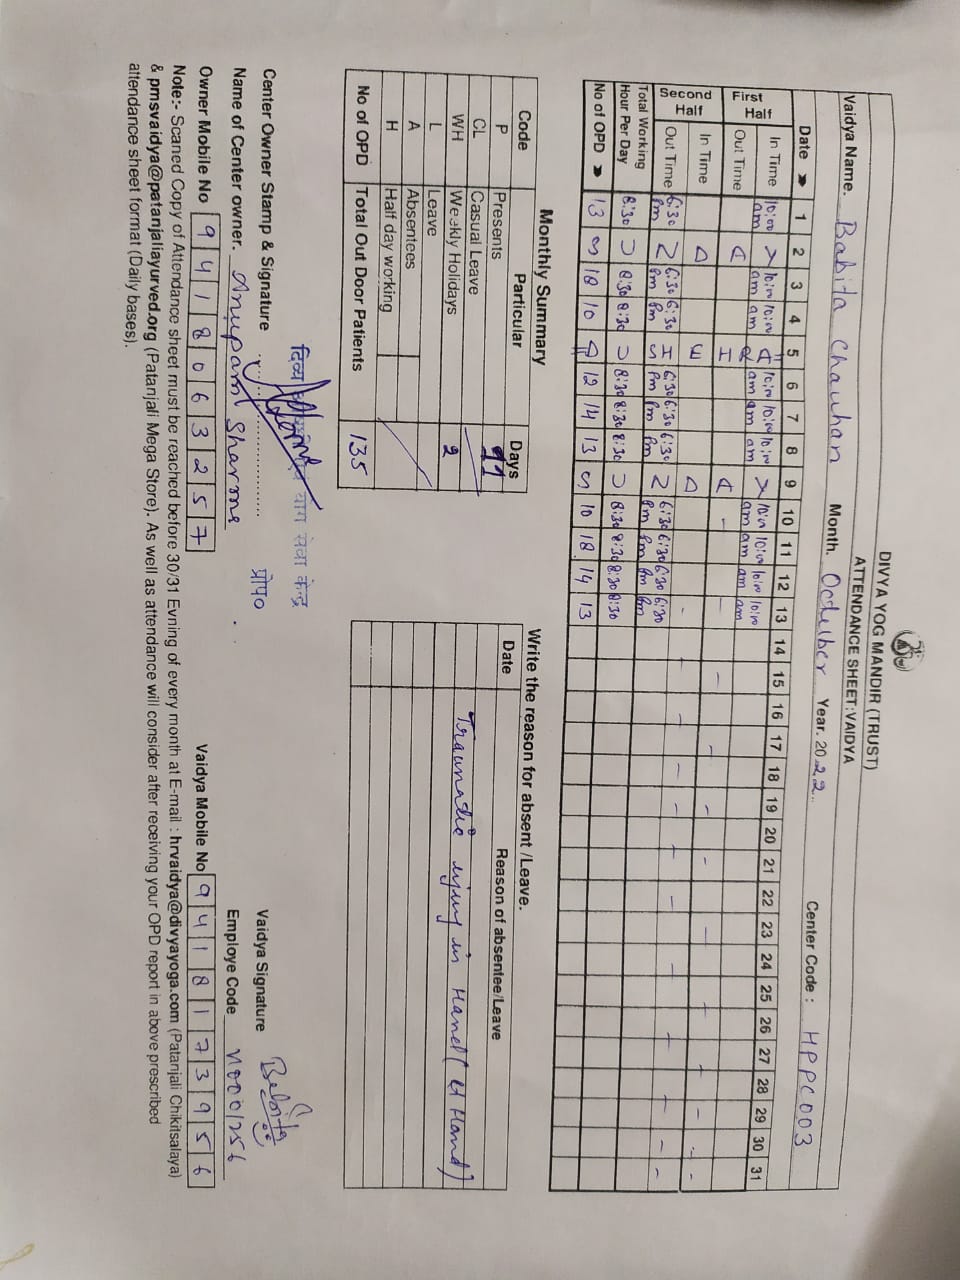 DIVYA YOG MANDIR (TRUST)
ATTENDANCE SHEET:VAIDYA
Vaidya Name. Babita Chauhan Month. Octulber Year. 2022 Center Code : HPPC003
Date 1 2 3 4 5 6 7 8 9 10 11 12 13 14 15 16 17 18 19 20 21 22 23 24 25 26 27 28 29 30 31
First Half In Time 10:00 am 10:00 am 10:00 am 10:00 am 10:00 am 10:00 am 10:00 am 10:00 am 10:00 am 10:00 am
Out Time
Second Half In Time
Out Time 6:30 pm 6:30 pm 6:30 pm 6:30 pm 6:30 pm 6:30 pm 6:30 pm 6:30 pm 6:30 pm 6:30 pm
SUNDAY
SUNDAY
Total Working Hour Per Day 8:30 8:30 8:30 8:30 8:30 8:30 8:30 8:30 8:30 8:30
No of OPD 13 18 10 12 14 13 10 18 14 13
Monthly Summary
Code Particular Days
P Presents 11
CL Casual Leave
WH Weekly Holidays 2
L Leave
A Absentees
H Half day working
No of OPD Total Out Door Patients 135
Write the reason for absent /Leave.
Date Reason of absentee/Leave
Traumatic injury in Hand ( Hand)
दिव्य योग सेवा केन्द्र
प्रोप०
Center Owner Stamp & Signature
Name of Center owner. Anupam Sharma
Owner Mobile No 9418063257
Vaidya Signature Babita
Employe Code N0001256
Vaidya Mobile No 9418173956
Note:- Scaned Copy of Attendance sheet must be reached before 30/31 Evning of every month at E-mail : hrvaidya@divyayoga.com (Patanjali Chikitsalaya)
& pmsvaidya@patanjaliayurved.org (Patanjali Mega Store). As well as attendance will consider after receiving your OPD report in above prescribed
attendance sheet format (Daily bases).